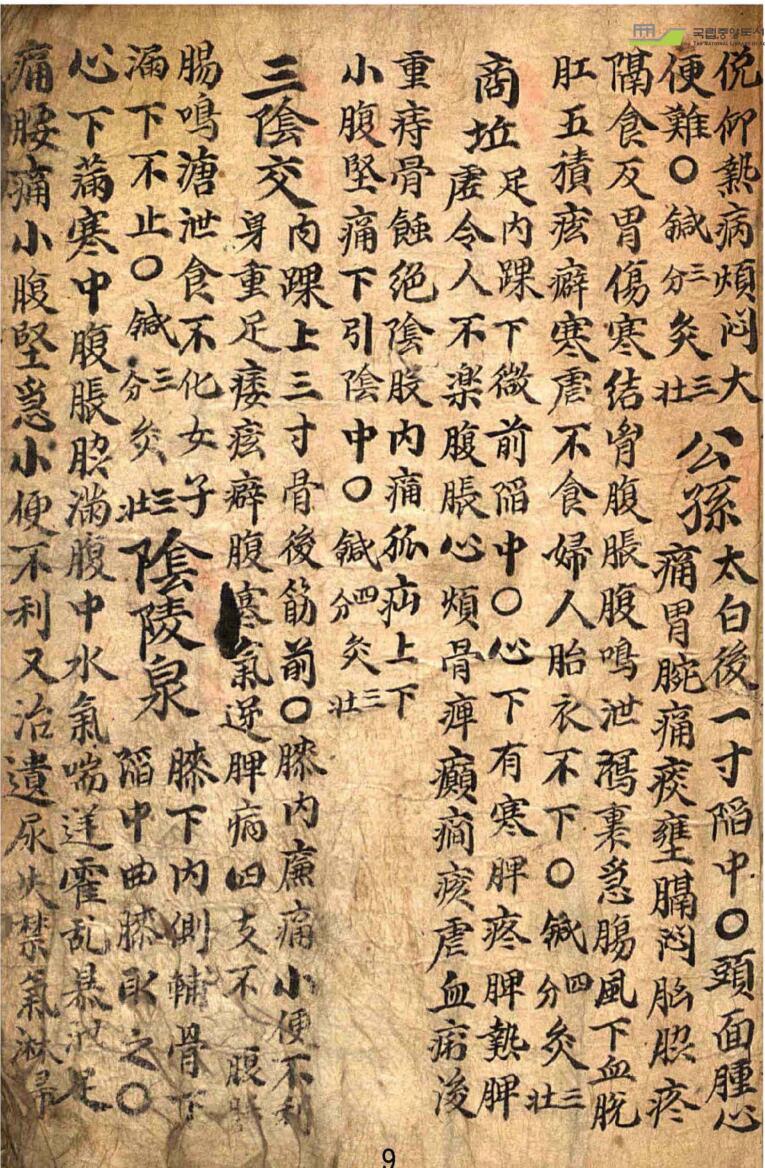 俛仰熱病煩悶大
便難〇鍼三分灸三壮
公孫
太白後一寸陷中〇頭面腫心
痛胃腕痛痰壅膈悶胸脇疼
隔食反胃傷寒結胷腹脹腹鳴泄瀉裏急腸風下血脫
肛五積痃癖寒瘧不食婦人胎衣不下〇鍼四分灸三壮
商坵
足内踝下微前陷中〇心下有寒脾疼脾熱脾
虛令人不楽腹脹心煩骨痺癲癇痎瘧血痢後
重痔骨蝕絶陰股内痛狐疝上下
小腹堅痛下引陰中〇鍼四分灸三壮
三陰交
内踝上三寸骨後筋前〇膝内廉痛小便不利
身重足痿痃癖腹寒氣逆脾病四支不 腹
腸鳴溏泄食不化女子
漏下不止〇鍼三分灸三壮
陰陵泉
膝下内側輔骨下
陷中曲膝取之〇
心下滿寒中腹脹脇滿腹中水氣喘逆霍乱暴泄
痛腰痛小腹堅急小便不利又治遺尿失禁氣淋
국립중앙도
9